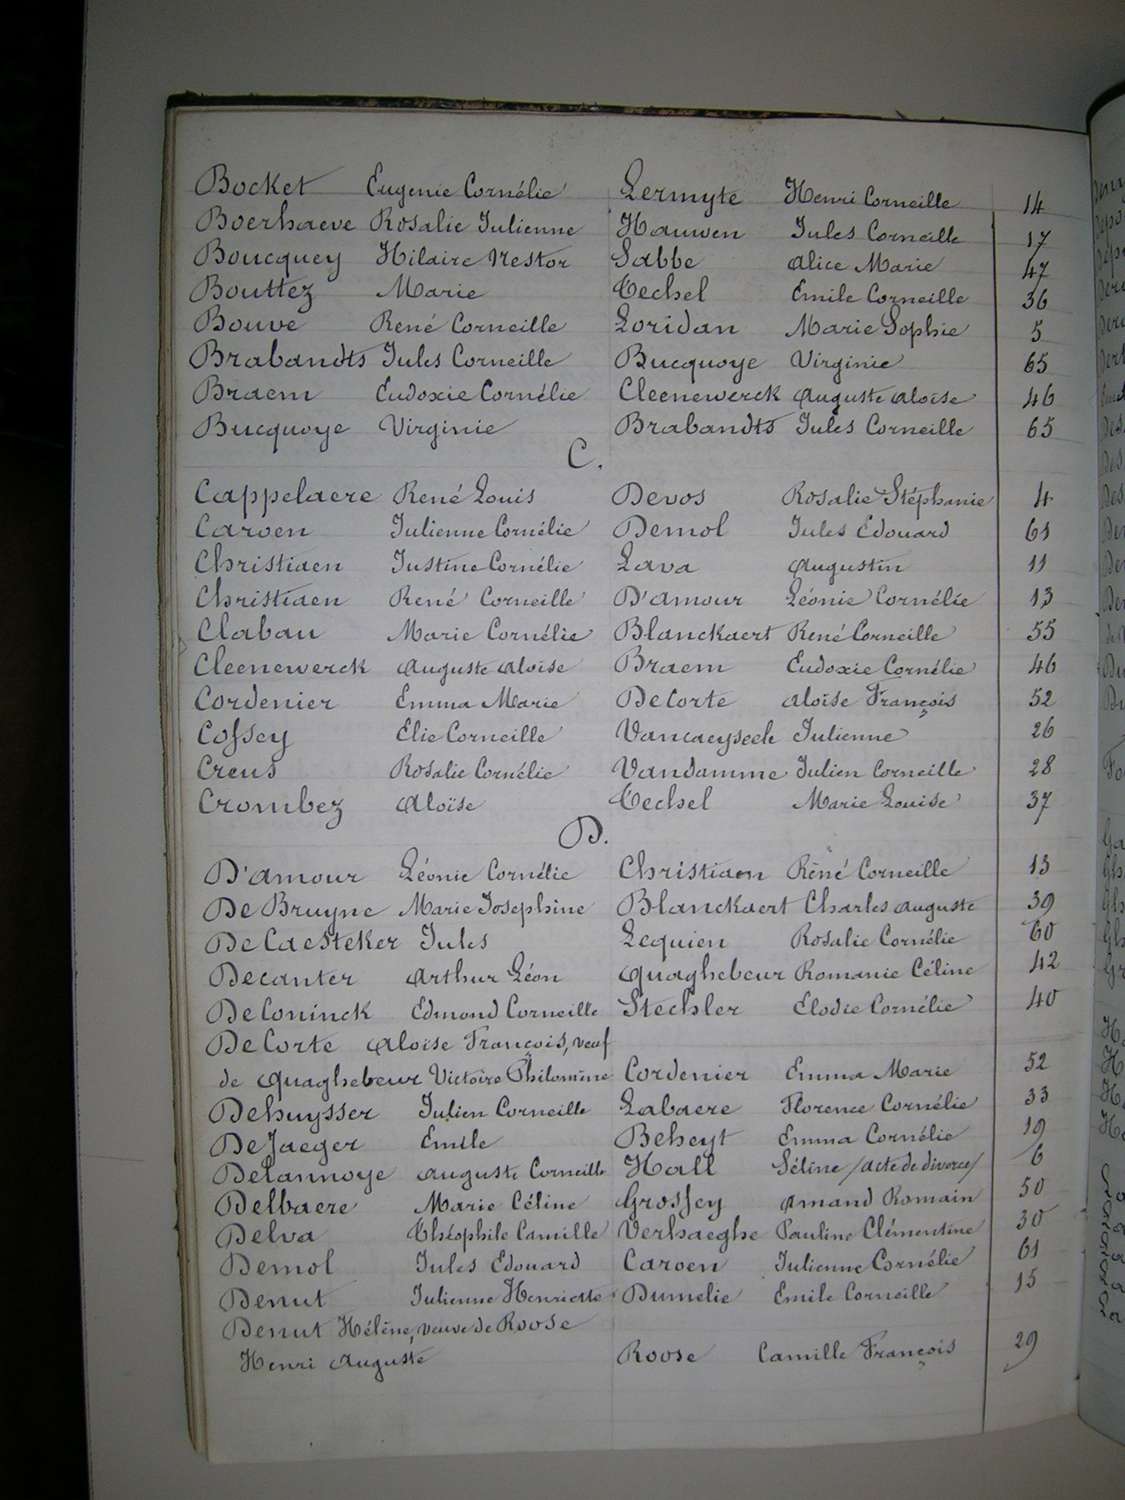 Bocket Eugenie Cornélie Lermyte Henri Corneille 14
Boerhaeve Rosalie Julienne Hauwen Jules Corneille 17
Boucquey Hilaire Nestor Sabbe Alice Marie 47
Bouttez Marie Techel Emile Corneille 36
Bouve René Corneille Loridan Marie Sophie 5
Brabandts Jules Corneille Bucquoye Virginie 65
Braem Eudoxie Cornélie Cleenewerck Auguste Aloïse 46
Bucquoye Virginie Brabandts Jules Corneille 65
C.
Cappelaere René Louis Devos Rosalie Stéphanie 4
Caroen Julienne Cornélie Demol Jules Edouard 61
Christiaen Justine Cornélie Lava Augustin 11
Christiaen René Corneille D'amour Léonie Cornélie 13
Clabau Marie Cornélie Blanckaert René Corneille 55
Cleenewerck Auguste Aloïse Braem Eudoxie Cornélie 46
Cordenier Emma Marie DeCorte Aloïse François 52
Cossey Elie Corneille Julienne 26
Creus Rosalie Cornélie Vandamme Julien Corneille 28
Crombez Aloïse Techel Marie Louise 37
D.
D'amour Léonie Cornélie Christiaen René Corneille 13
De Bruyne Marie Josephine Blanckaert Charles Auguste 39
De Caesteker Jules Lequien Rosalie Cornélie 60
Decanter Arthur Léon Quaghebeur Romanie Céline 42
DeConinck Edmond Corneille Stechler Elodie Cornélie 40
DeCorte Aloïse François, veuf
de Quaghebeur Victoire Philomène Cordenier Emma Marie 52
Dehuysser Julien Corneille Labaere Florence Cornélie 33
DeJaeger Emile Beheyt Emma Cornélie 19
Delannoye Auguste Corneille Hall Séline /acte de divorce/ 6
Delbaere Marie Céline Grossey Amand Romain 50
Delva Théophile Camille Verhaeghe Pauline Clémentine 30
Demol Jules Edouard Caroen Julienne Cornélie 61
Denut Julienne Henriette Dumelie Emile Corneille 15
Denut Hélène, veuve de Roose
Henri Auguste Roose Camille François 29